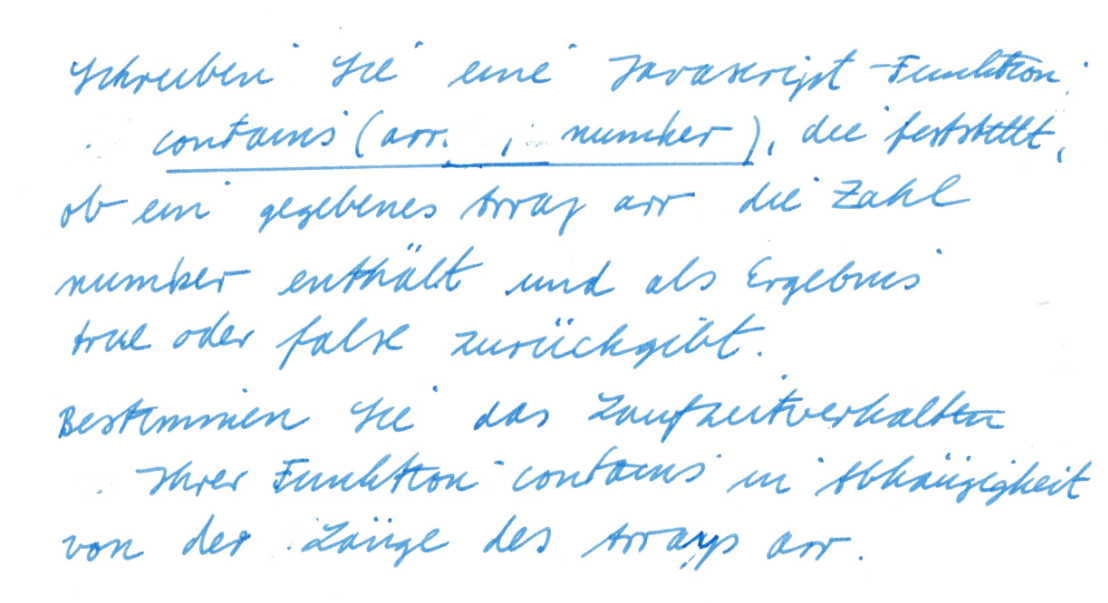 Schreiben Sie eine Javascript-Funktion
contains (arr. , number), die feststellt,
ob ein gegebenes Array arr die Zahl
number enthält und als Ergebnis
true oder false zurückgibt.
Bestimmen Sie das Laufzeitverhalten
Ihrer Funktion contains in Abhängigkeit
von der Länge des Arrays arr.